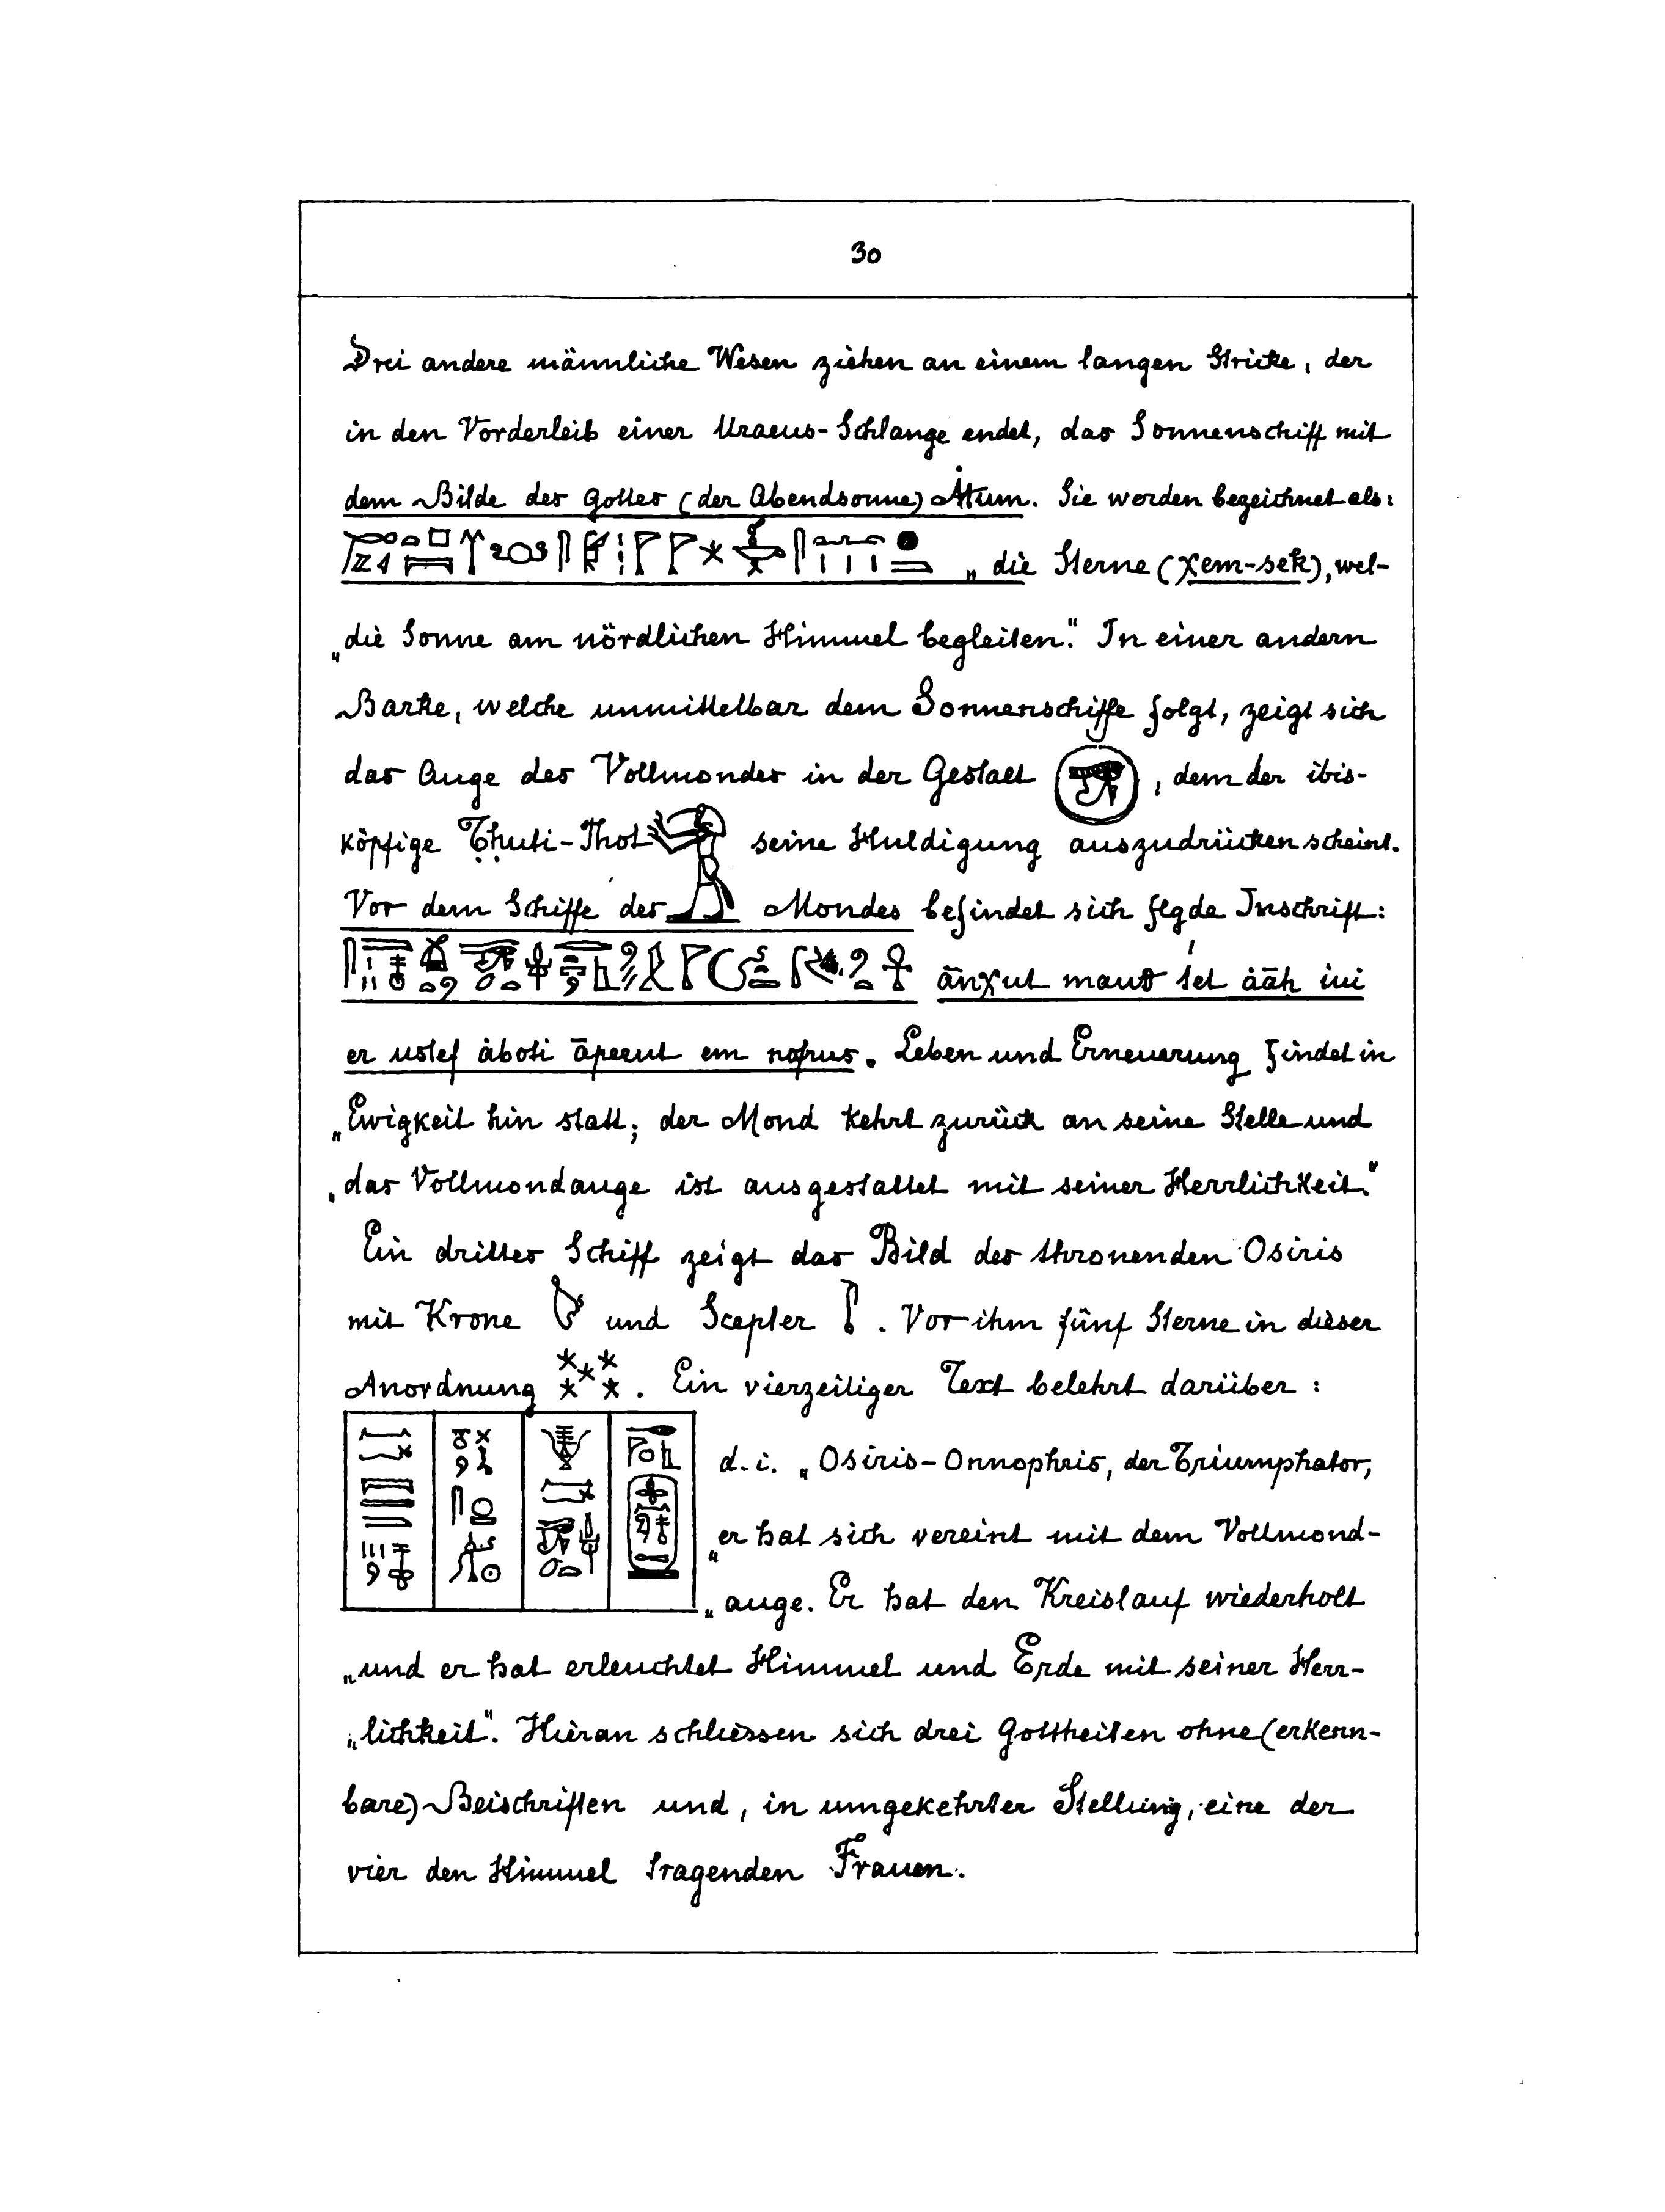 30
Drei andere männliche Wesen ziehen an einem langen Stricke, der
in den Vorderleib einer Uraeus-Schlange endet, das Sonnenschiff mit
dem Bilde des Gottes (der Abendsonne) Ȧtum. Sie werden bezeichnet als:
„die Sterne (χem-sek), wel-
„die Sonne am nördlichen Himmel begleiten." In einer andern
Barke, welche unmittelbar dem Sonnenschiffe folgt, zeigt sich
das Auge des Vollmondes in der Gestalt , dem der ibis-
köpfige Tḥuti-Thot seine Huldigung auszudrücken scheint.
Vor dem Schiffe des Mondes befindet sich flgde Inschrift:
ānχut maut ṡet ȧāḥ iui
er ustef ȧboti āperut em nofrus. Leben und Erneuerung findet in
„Ewigkeit hin statt; der Mond kehrt zurück an seine Stelle und
„das Vollmondauge ist ausgestattet mit seiner Herrlichkeit."
Ein drittes Schiff zeigt das Bild des thronenden Osiris
mit Krone und Scepter . Vor ihm fünf Sterne in dieser
Anordnung . Ein vierzeiliger Text belehrt darüber :
d. i. „Osiris-Onnophris, der Triumphator,
„er hat sich vereint mit dem Vollmond-
„auge. Er hat den Kreislauf wiederholt
„und er hat erleuchtet Himmel und Erde mit seiner Herr-
„lichkeit". Hieran schliessen sich drei Gottheiten ohne (erkenn-
bare) Beischriften und, in umgekehrter Stellung, eine der
vier den Himmel tragenden Frauen.